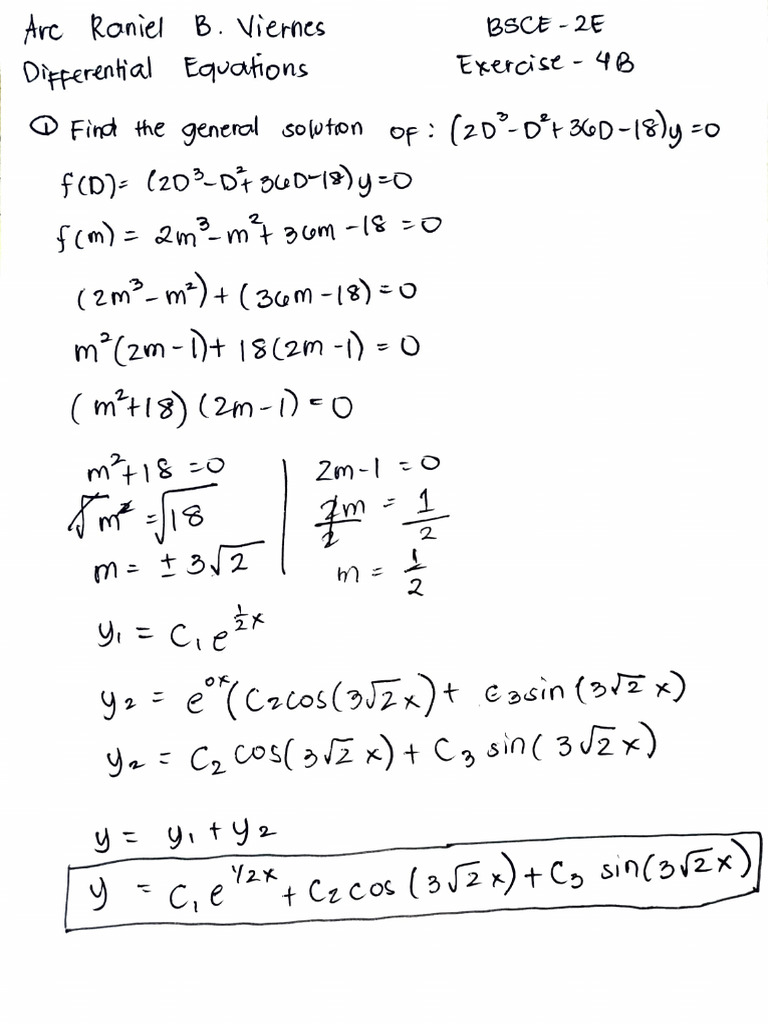 Arc Raniel B. Viernes BSCE - 2E
Differential Equations Exercise - 4B
① Find the general solution of : (2D³-D²+36D-18)y=0
f(D)= (2D³-D²+36D-18)y=0
f(m) = 2m³-m²+36m-18 =0
(2m³-m²)+(36m-18)=0
m²(2m-1)+ 18(2m-1) = 0
(m²+18)(2m-1)=0
m²+18 =0 2m-1 =0
√m² =√18 2m/2 = 1/2
m= ±3√2 m = 1/2
y₁ = C₁e^(1/2x)
y₂ = e^(0x)(C₂cos(3√2x)+ C₃sin(3√2x)
y₂ = C₂ cos(3√2x)+ C₃ sin(3√2x)
y= y₁+y₂
y = C₁e^(1/2x) + C₂cos (3√2x)+C₃ sin(3√2x)